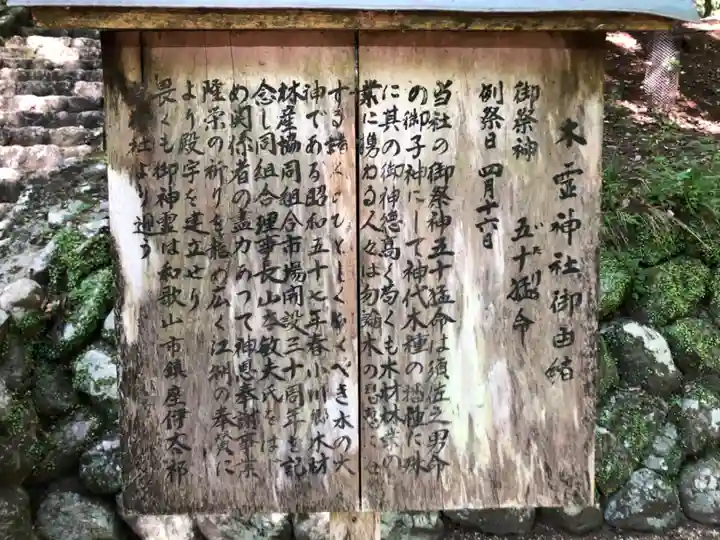 木霊神社御由緒
御祭神 五十猛命
いたける
例祭日 四月十六日
当社の御祭神五十猛命は須佐之男命
の御子神にして神代木種の播植に殊
に其の御神徳高く尚くも木材林業の
業に携わる人々は勿論木の恩恵に
する諸々のひとしくべき木の大
神である昭和五十七年春小川郷木材
林産協同組合市場開設三十周年を記
念し同組合理事長山本敏夫氏をは
め関係者の盡力あつて神恩奉謝事業
隆祟の祈りを籠め広く江湖の奉賛に
より殿宇を建立せり
畏くも御神霊は和歌山市鎮座伊太祁
神社より迎う